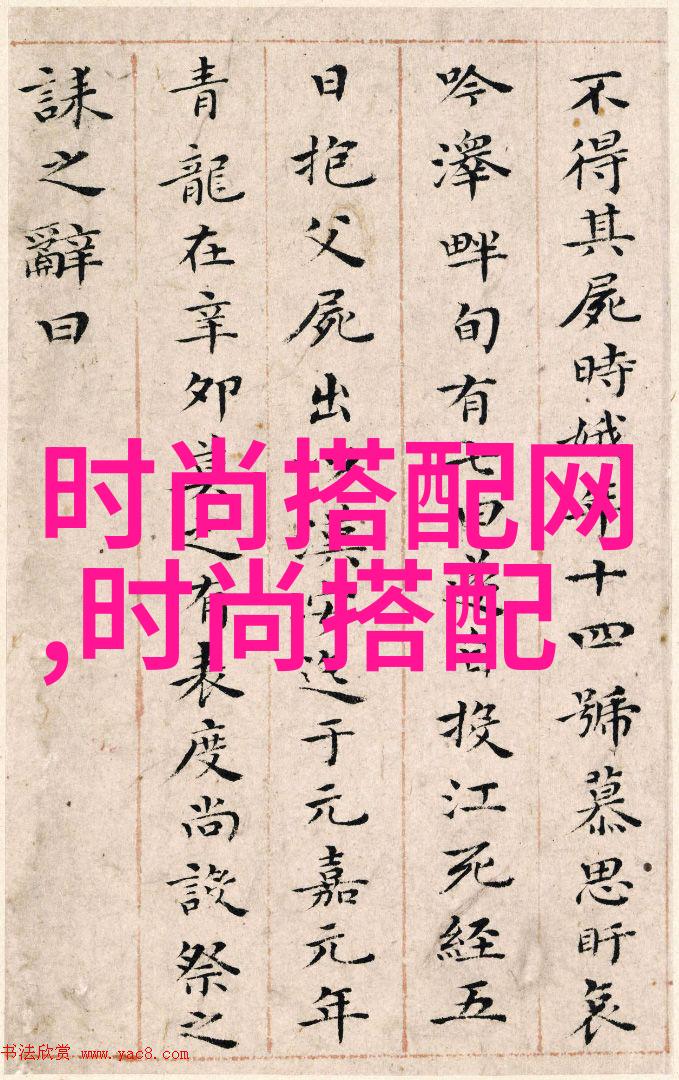 不得其屍時娥年十四號慕思盱哀
吟澤畔旬有七日遂自投江死經五
日抱父屍出漢安迄于元嘉元年
青龍在辛卯莫之有表度尚設祭之
誄之辭曰
时尚搭配网
,时尚搭配
书法欣赏 www.yac8.com